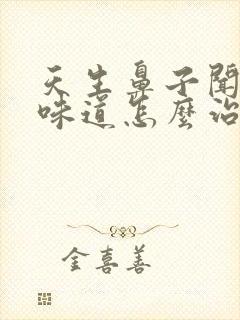 天生鼻子聞
味道怎麼治
金喜善